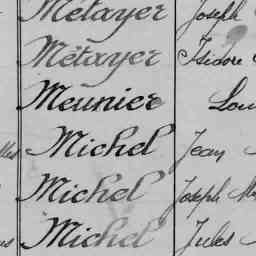 Métayer Joseph
Métayer Isidore
Meunier
Michel Jean
Michel Joseph
Michel Jules